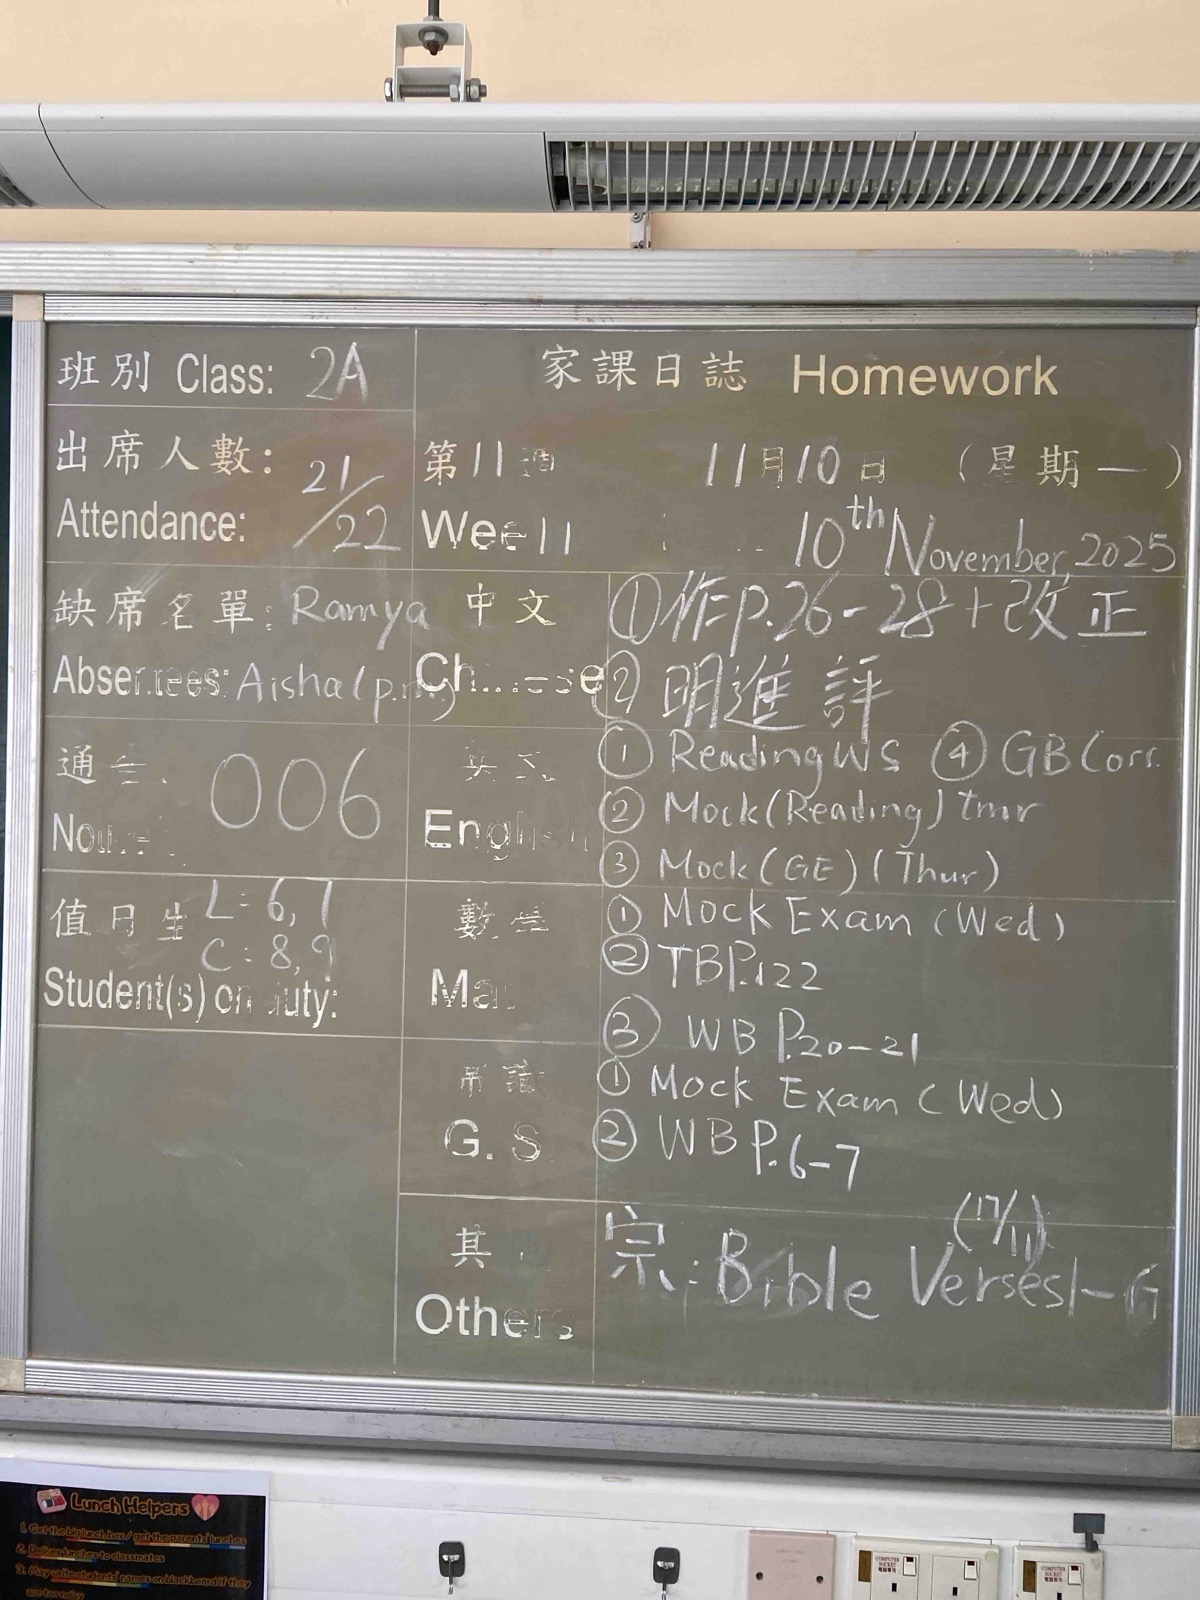 班別 Class: 2A
家課日誌 Homework
出席人數: 21/22
Attendance:
第11週 11月10日 (星期一)
Wee 11 10th November, 2025
缺席名單: Ramya
Absentees: Aisha (p.m.)
中文
Chinese
① 作p.26-28+改正
② 明進評
通告
006
英文
English
① Reading WS ④ GB Corr.
② Mock (Reading) tmr
③ Mock (GE) (Thur)
值日生 L: 6, 7
C: 8, 9
Student(s) on duty:
數學
Ma
① Mock Exam (Wed)
② TB P.122
③ WB P.20-21
常識
G. S.
① Mock Exam (Wed)
② WB P.6-7
其
Others
(17/11)
宗: Bible Verses 1-6
Lunch Helpers
1. Get the big lunch box / get the parents' lunches
2. Deliver lunches to classmates
3. May write students' names on blackboard if they
are too noisy
COMPUTER SOCKET
電腦專用
COMPUTER SOCKET
電腦專用